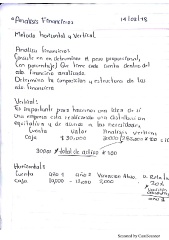 *Analisis Financieros 14/08/18
Metodo horizontal y Vertical
Analisis financiero
Consiste en determinar el peso proporcional
(en porcentaje) que tiene cada cuenta dentro del
edo. financiero analizado.
Determina la composicion y estructura de los
edo. financieros
Vertical:
Es importante para hacernos una idea de si
una empresa esta realizando una distribucion
equitativa y de acuerdo a las necesidades.
Cuenta Valor Analisis vertical
Caja $30,000 3000
3000 total de activo
Horizontal:
Cuenta año 1 año 2 Variacion Abso. V. Relativa
Caja 10,000 12,000 2,000 20%
año 1
Scanned by CamScanner